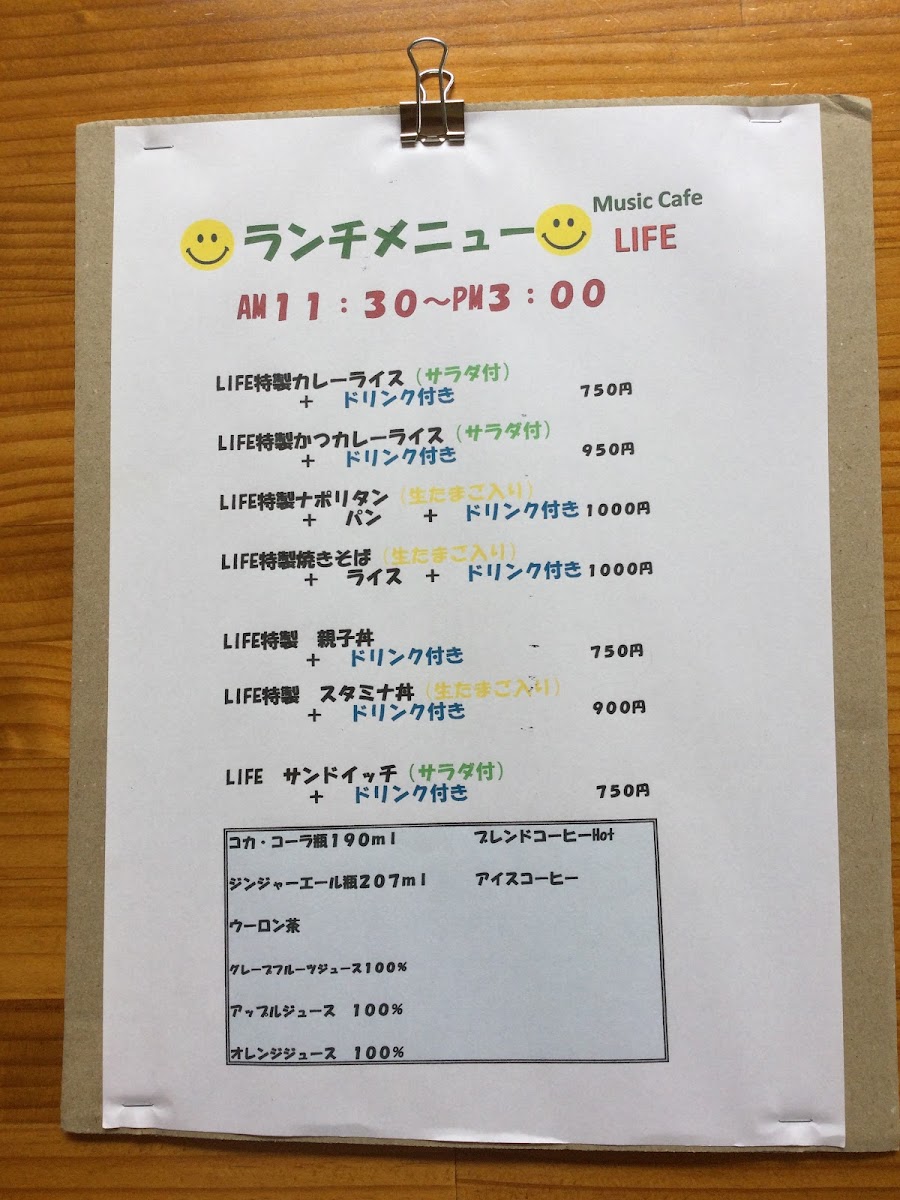 Music Cafe
ランチメニュー LIFE
AM11:30～PM3:00
LIFE特製カレーライス（サラダ付）
+ ドリンク付き 750円
LIFE特製かつカレーライス（サラダ付）
+ ドリンク付き 950円
LIFE特製ナポリタン（生たまご入り）
+ パン + ドリンク付き 1000円
LIFE特製焼きそば（生たまご入り）
+ ライス + ドリンク付き 1000円
LIFE特製 親子丼
+ ドリンク付き 750円
LIFE特製 スタミナ丼（生たまご入り）
+ ドリンク付き 900円
LIFE サンドイッチ（サラダ付）
+ ドリンク付き 750円
コカ・コーラ瓶190ml ブレンドコーヒーHot
ジンジャーエール瓶207ml アイスコーヒー
ウーロン茶
グレープフルーツジュース100%
アップルジュース 100%
オレンジジュース 100%